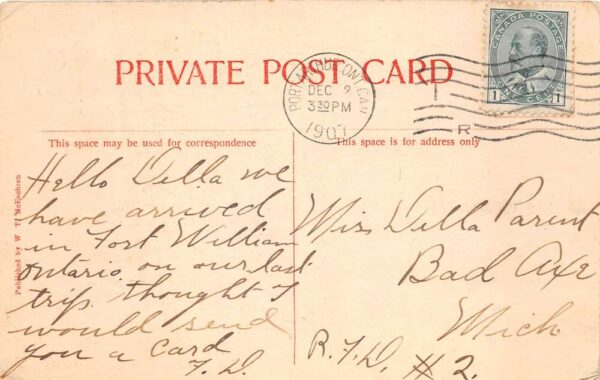 PRIVATE POST CARD
CANADA POSTAGE
1 ONE CENT 1
PORT ARTHUR, ONT. CAN
DEC 9
3 30 PM
1907
R
This space may be used for correspondence
This space is for address only
Published by W. T. McEachren
Hello Della we
have arrived
in Fort William
Ontario on our last
trip. thought I
would send
you a card
F. D.
Miss Della Parent
Bad Axe
Mich
R. F. D. #2.